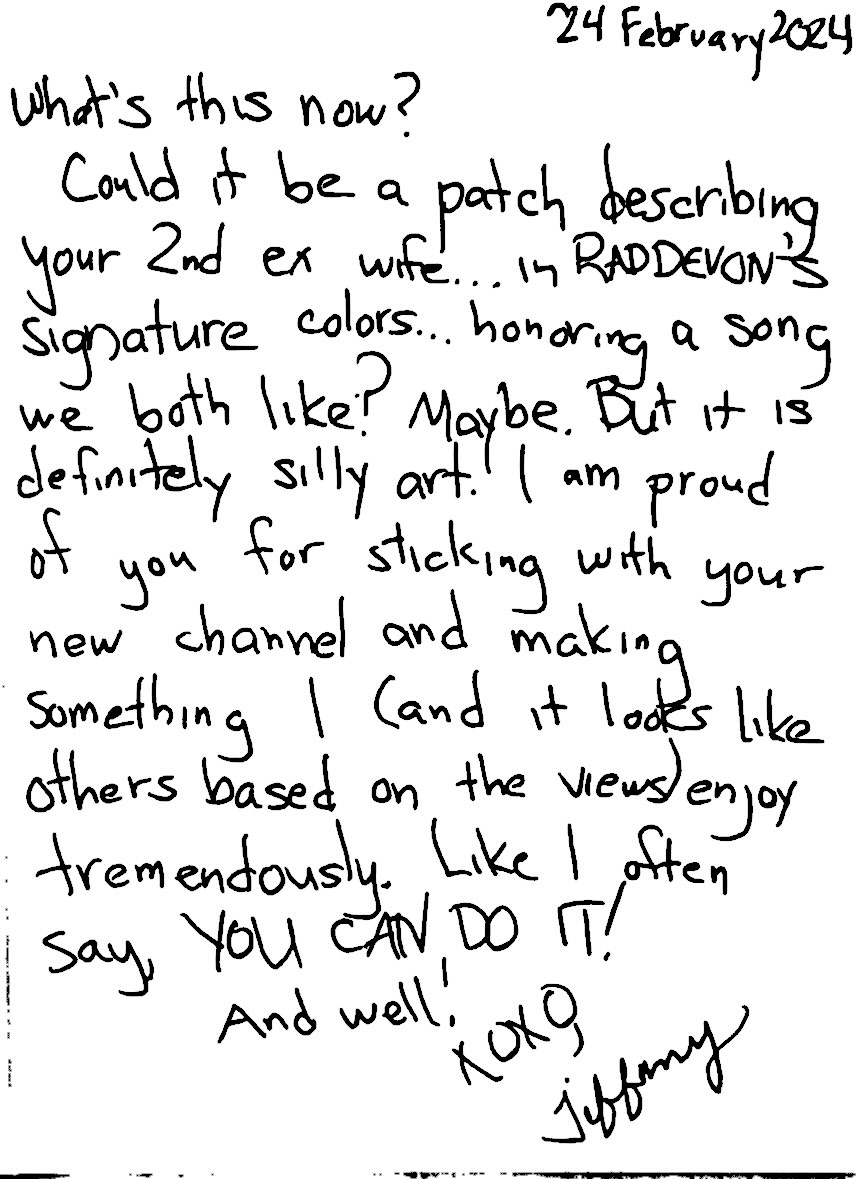 24 February 2024
What's this now?
Could it be a patch describing
your 2nd ex wife... in RADDEVON'S
signature colors... honoring a song
we both like? Maybe. But it is
definitely silly art! I am proud
of you for sticking with your
new channel and making
something I (and it looks like
others based on the views) enjoy
tremendously. Like I often
say, YOU CAN DO IT!
And well!
XOXO,
Jiffany